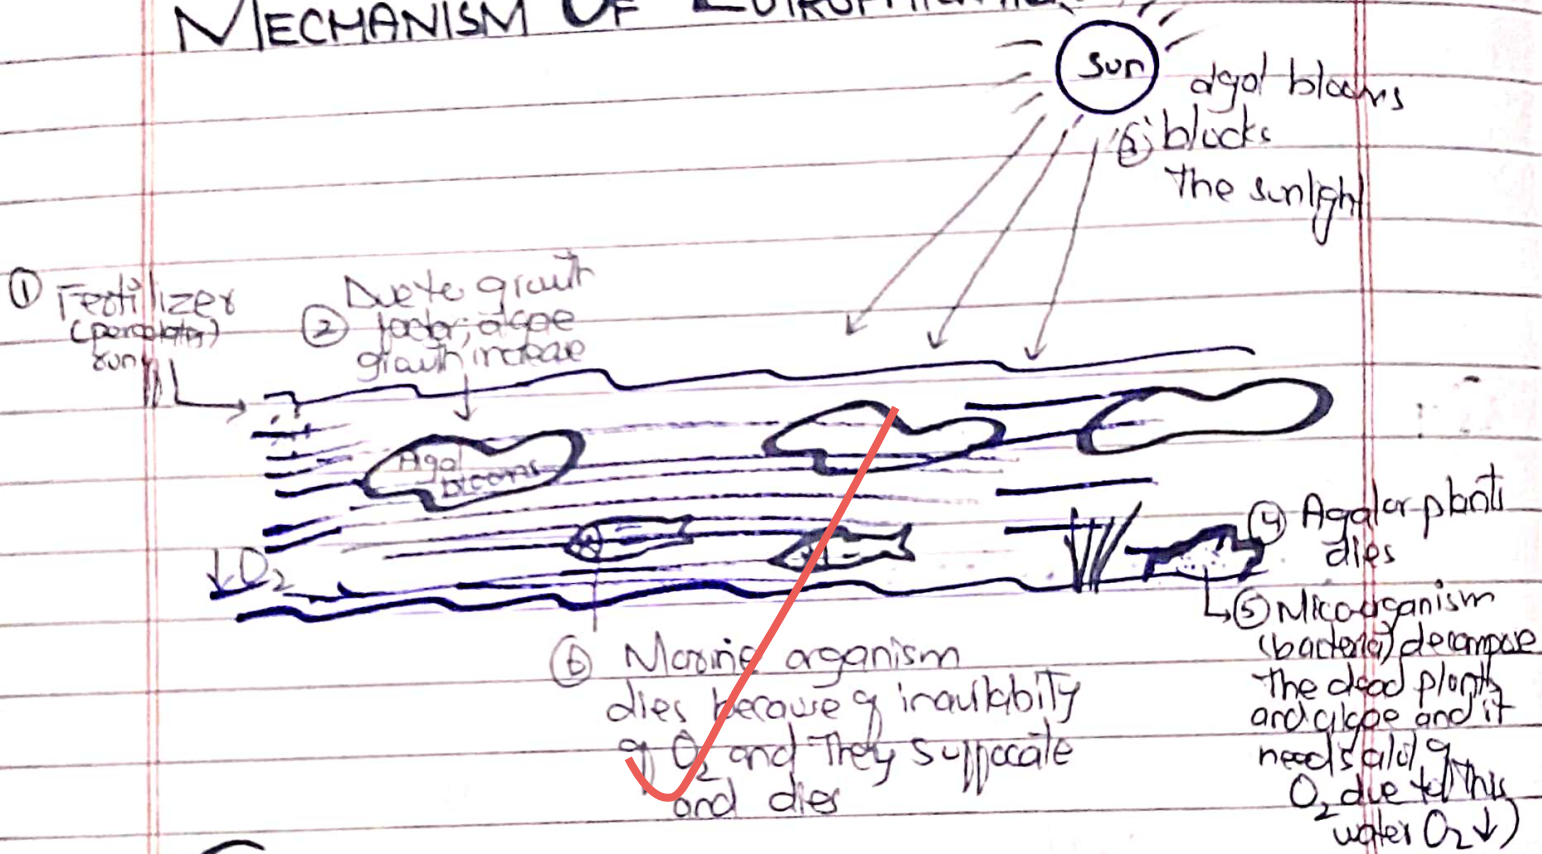 MECHANISM OF
Sun
algal blooms
③ blocks
the sunligh
① Fertilizer
run
② Due to growth
factor, algae
growth increase
Algal
blooms
↓O₂
④ Agal or plants
dies
⑤ Micoorganism
(bacteria) decompose
the dead plants
and algae and it
needs alot of
O₂ due to this
water O₂ ↓)
⑥ Marine organism
dies because of inavilability
of O₂ and They suffocate
and dies